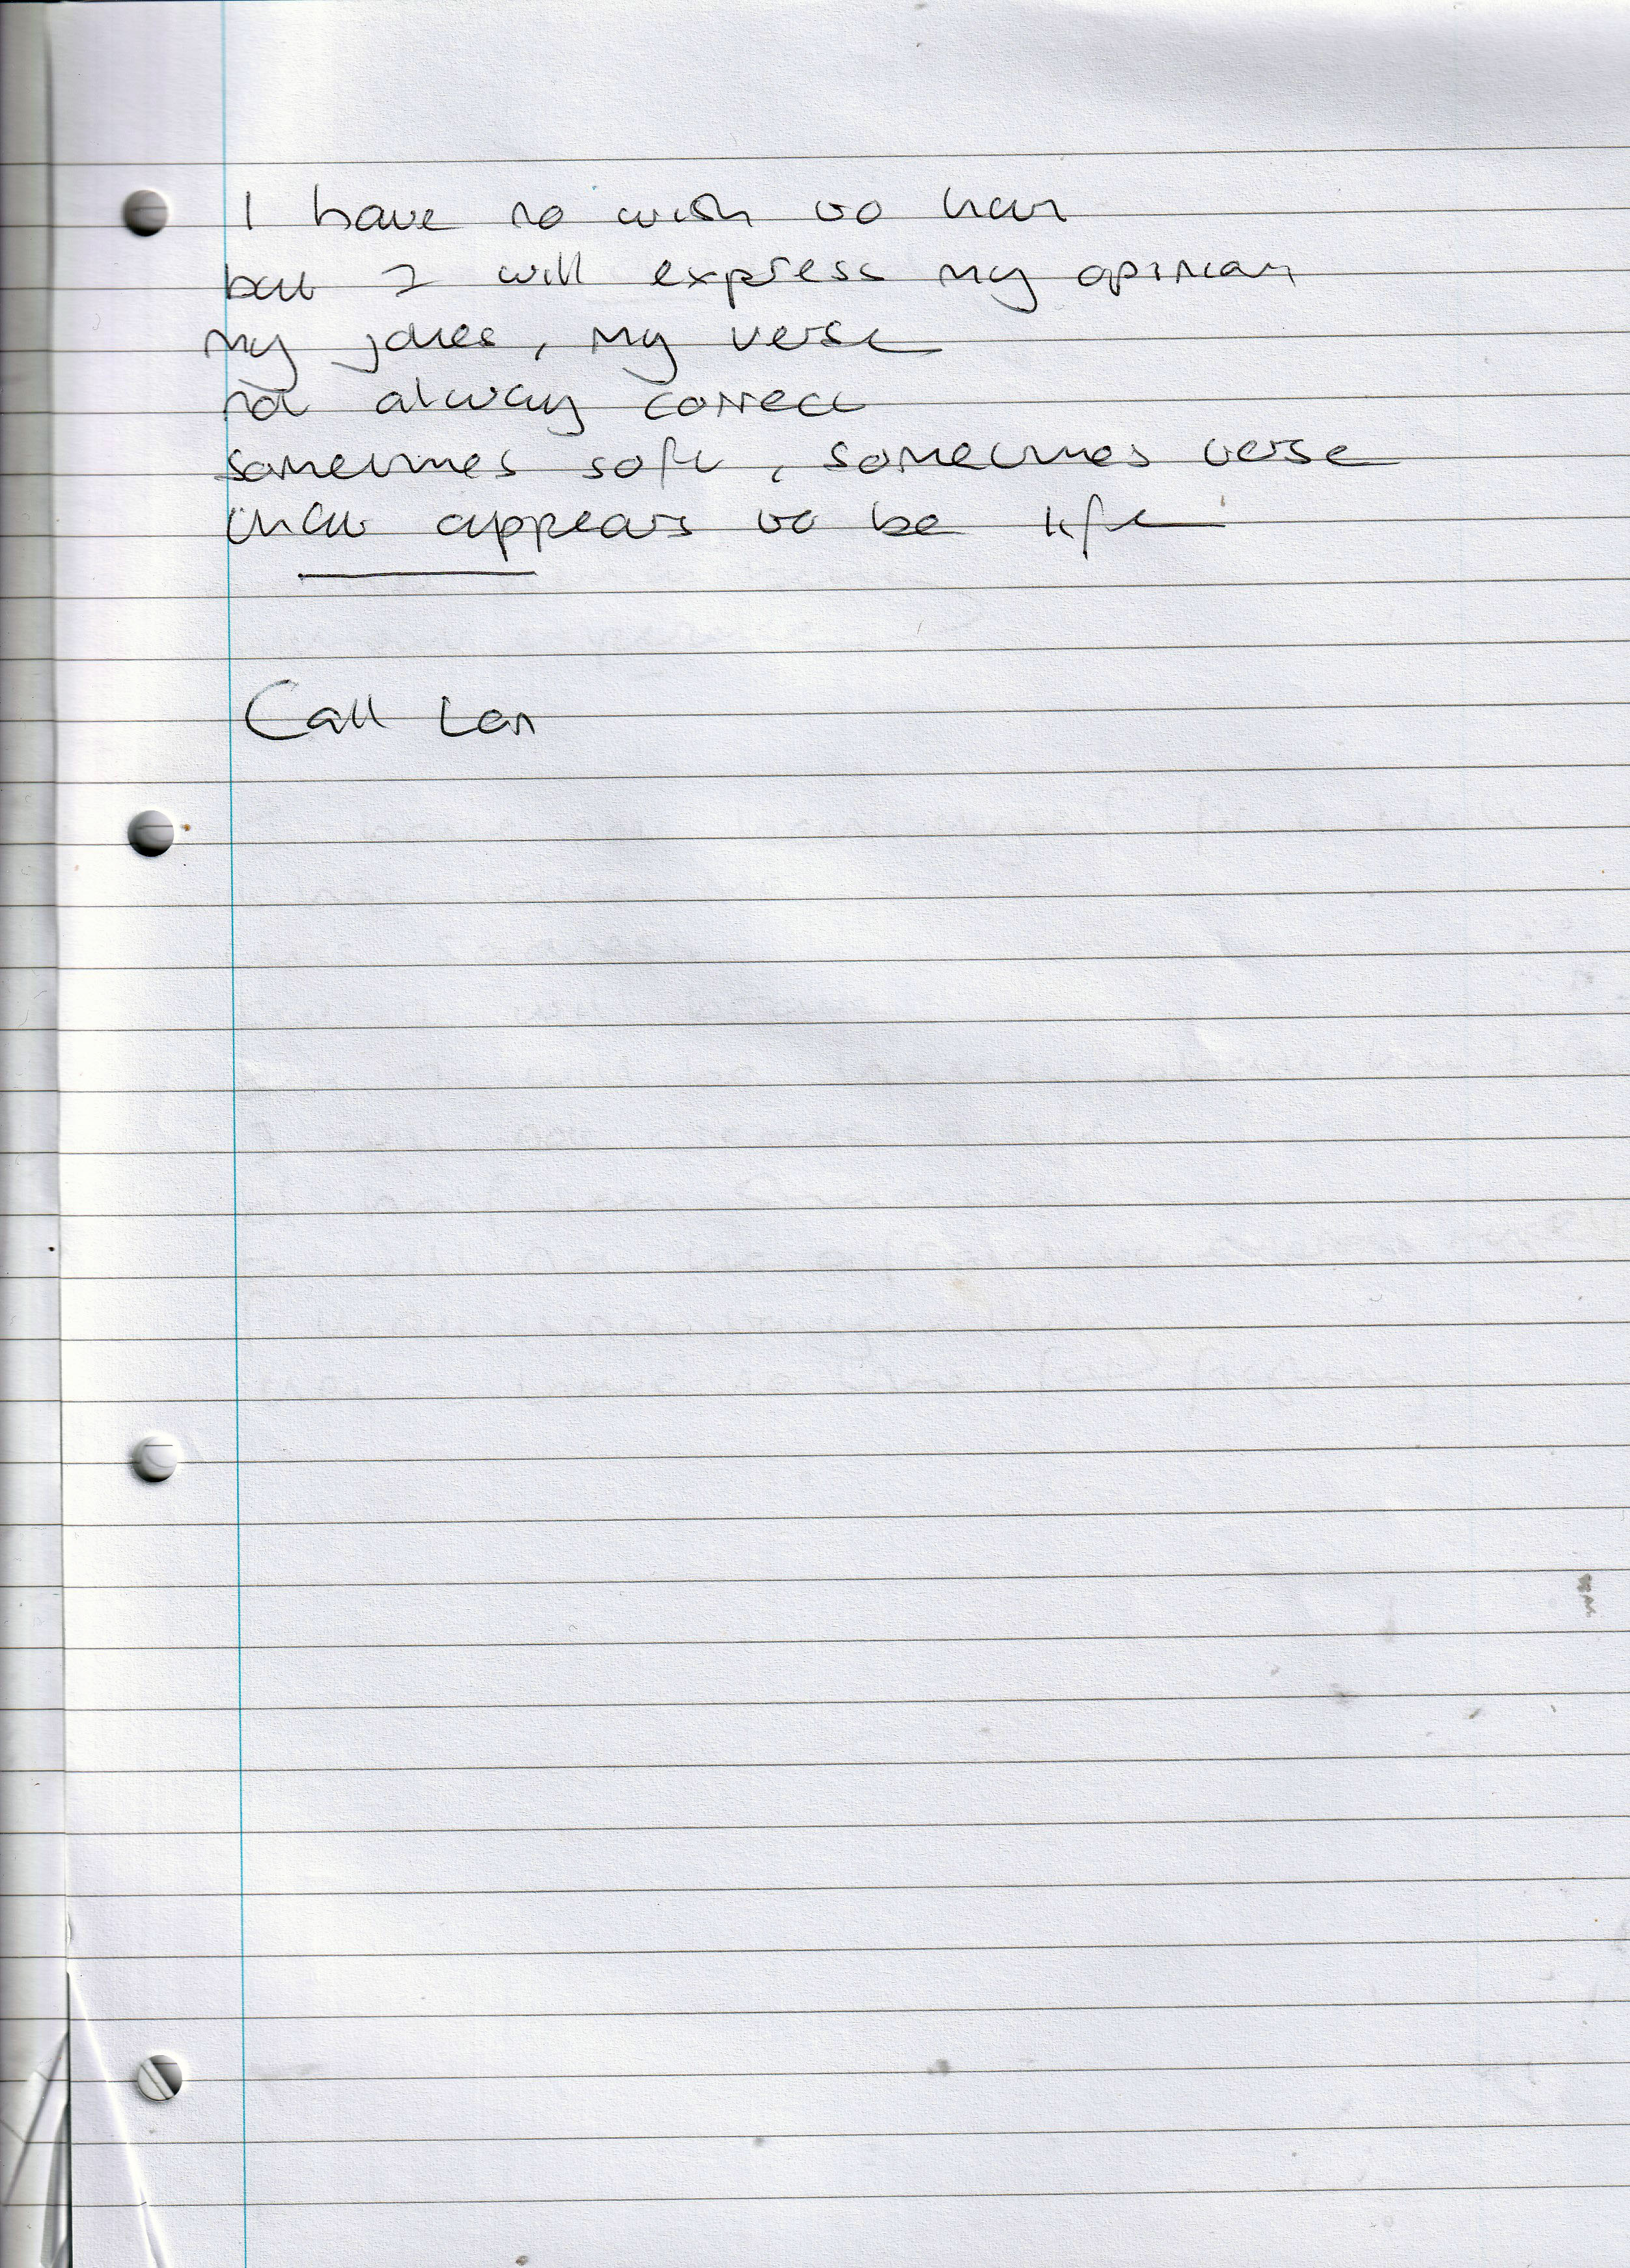 I have no wish to
but I will express my opinion
my jokes, my verse
not always correct
sometimes soft, sometimes verse
that appears to be life
Call Len